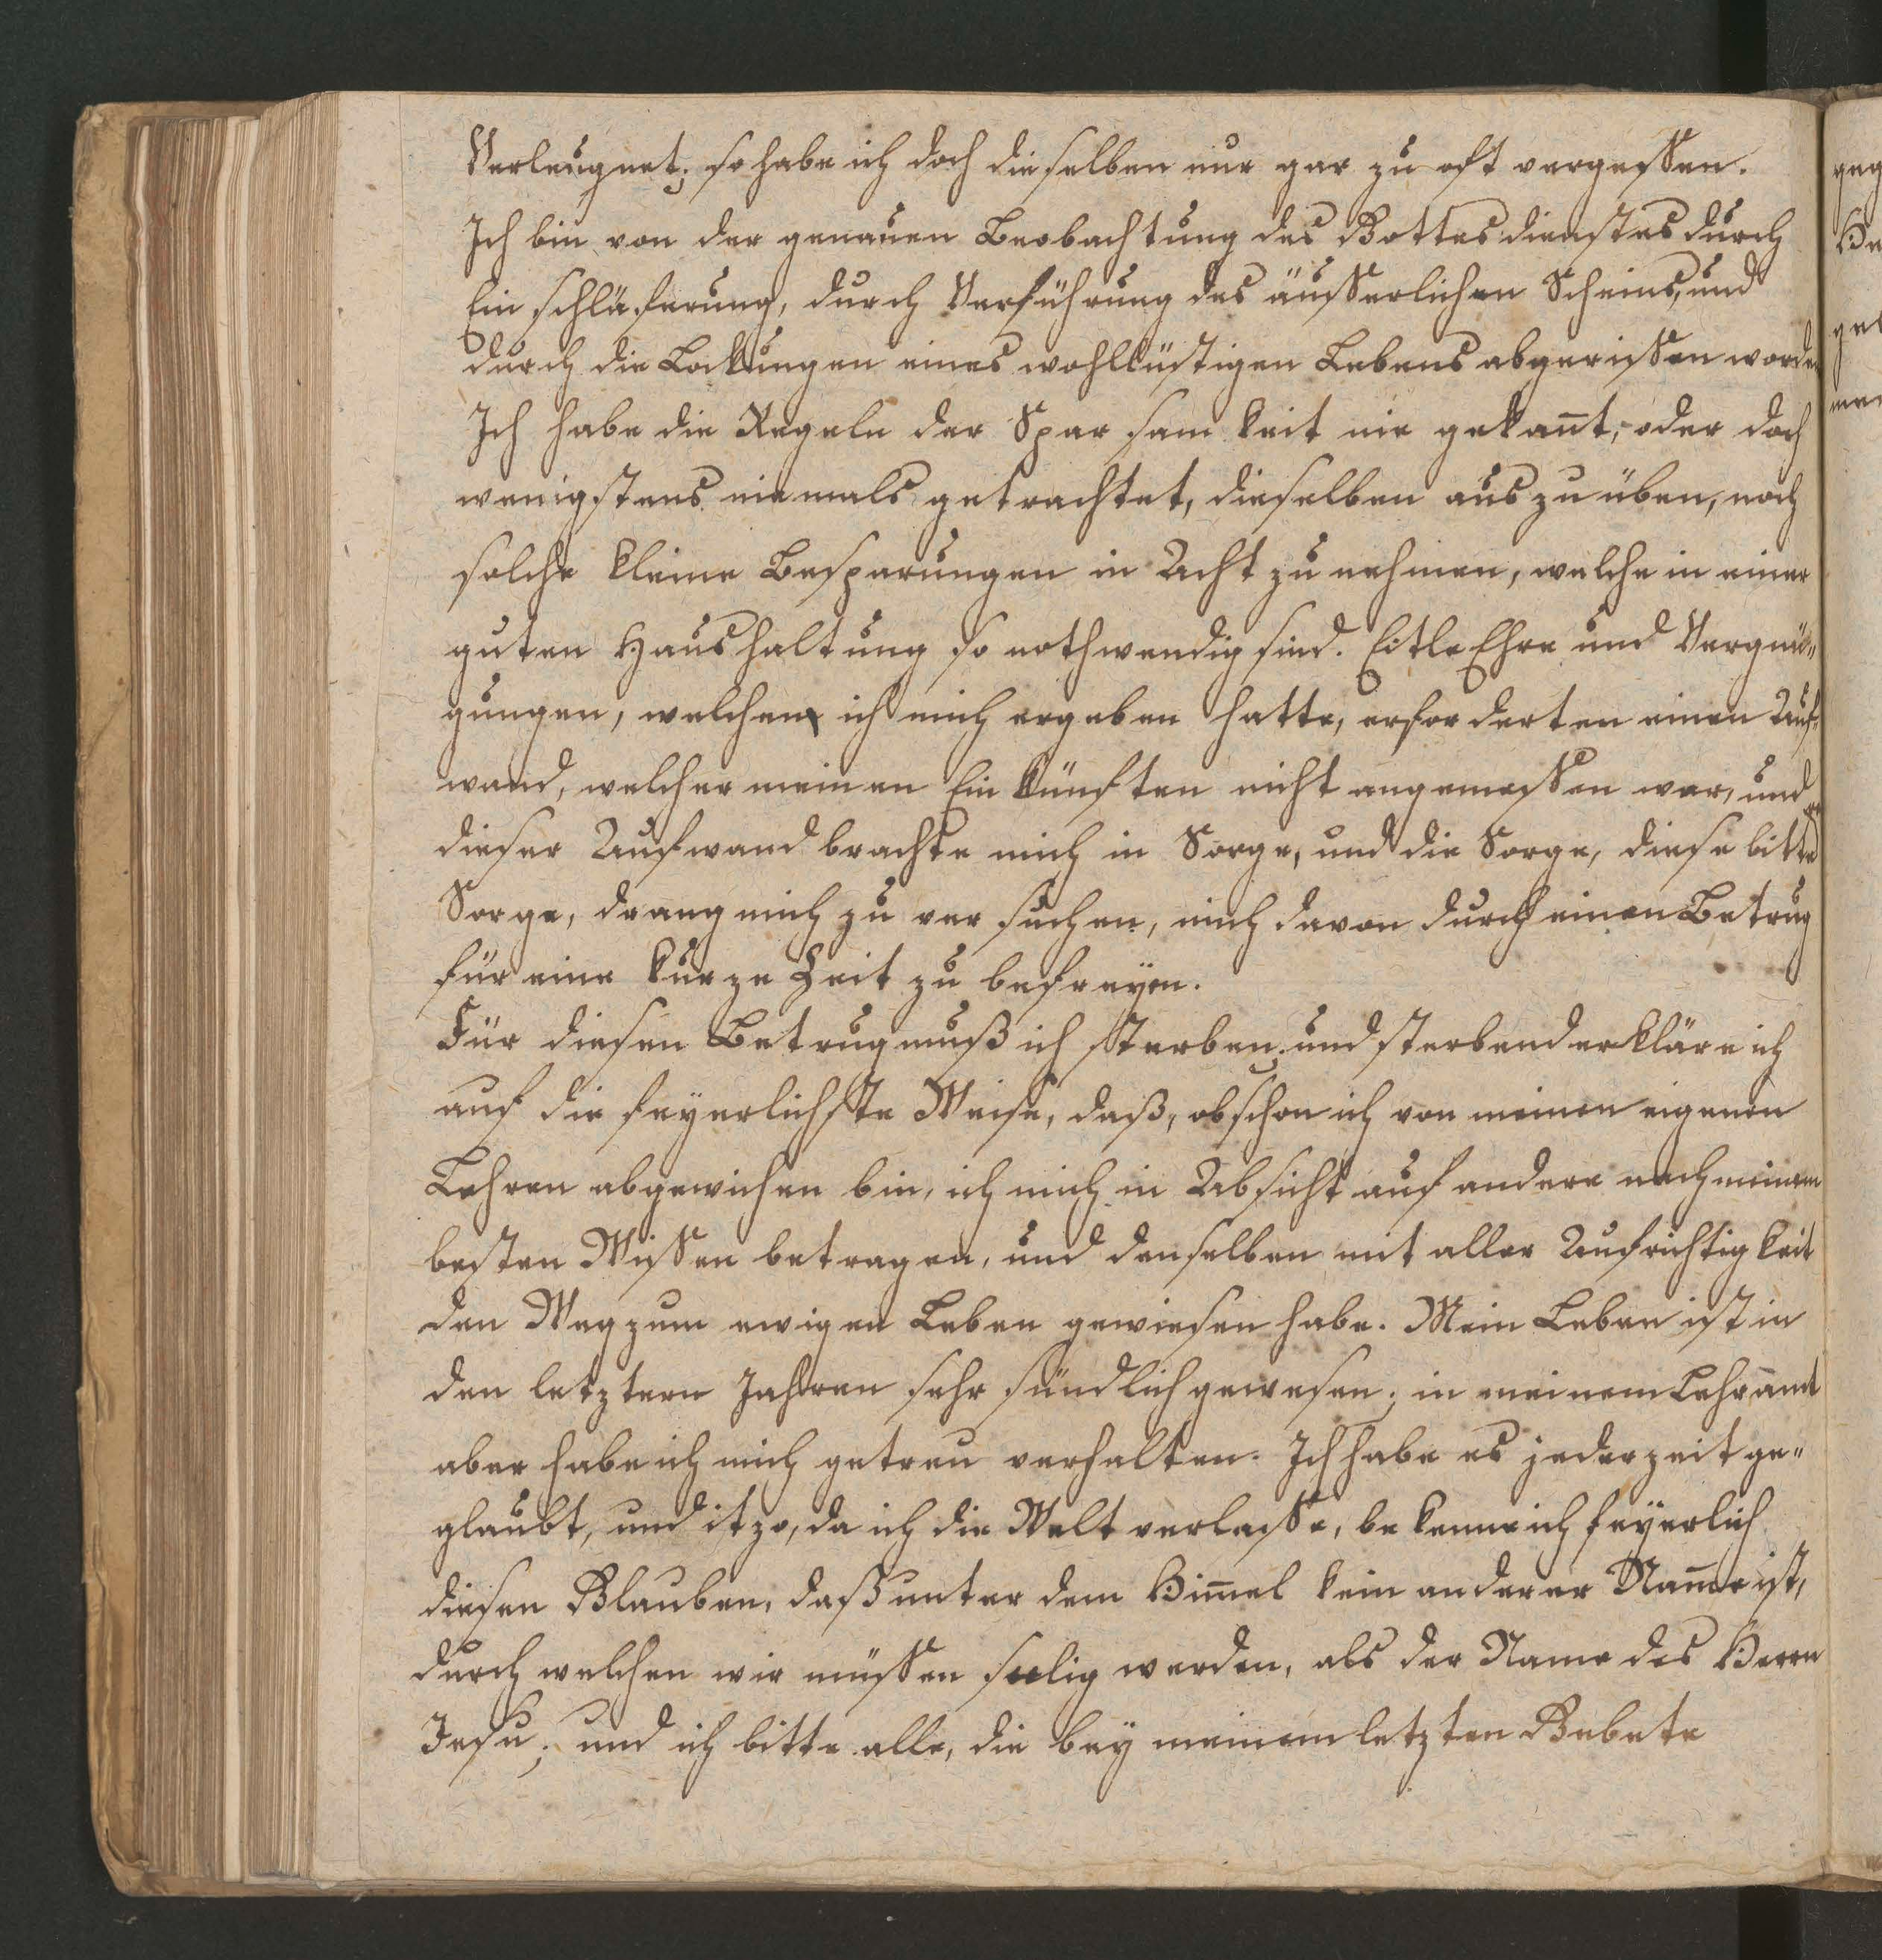 Verleugnet; so habe ich doch dieselben nur gar zu oft vergessen.
Ich bin von der genauen Beobachtung des Gottesdienstes durch
Ein schläferung, durch Verführung des äusserlichen Scheins, und
durch die Lockungen eines wohllüstigen Lebens abgerissen worden
Ich habe die Regeln der Sparsamkeit nie gekañt, oder doch
wenigstens niemals getrachtet, dieselben auszuüben, noch
solche kleine Besparungen in Acht zu nehmen, welche in einer
guten Haushaltung so nothwendig sind. Eitle Ehre und Vergnü"
gungen, welchen ich mich ergeben hatte, erforderten einen Auf"
wand, welcher meinen Einkünften nicht angemessen war, und
dieser Aufwand brachte mich in Sorge, und die Sorge, diese bittre
Sorge, drang mich zu versuchen, mich davon durch einen Betrug
für eine kurze Zeit zu befreyen.
Für diesen Betrug muß ich sterben; und sterbend erkläre ich
auf die feyerlichste Weise, daß, obschon ich von meinen eigenen
Lehren abgewichen bin, ich mich in Absicht auf andere nach meinem
besten Wissen betragen, und denselben mit aller Aufrichtigkeit
den Weg zum ewigen Leben gewiesen habe. Mein Leben ist in
den letztern Jahren sehr sündlich gewesen; in meinem Lehramt
aber habe ich mich getreu verhalten. Ich habe es jederzeit ge"
glaubt, und itzo, da ich die Welt verlasse, bekenne ich feyerlich
diesen Glauben, daß unter dem Him̄el kein anderer Nam̄e ist,
durch welchen wir müssen seelig werden, als der Name des Herrn
Jesu; und ich bitte alle, die bey meinem letzten Gebete